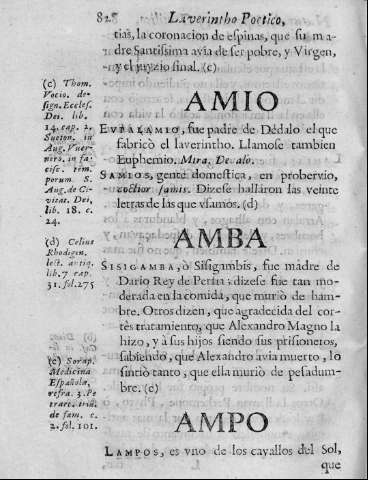 828 Laverintho Poetico,
tias, la coronacion de espinas, que su ma
dre Santissima avia de ser pobre, y Virgen,
y el juyzio final. (c)
AMIO
EVPALAMIO, fue padre de Dédalo el que
fabricò el laverintho. Llamose tambien
Euphemio. Mira. Dedalo.
SAMIOS, gente domestica, en probervio,
coctior samis. Dizese hallaron las veinte
letras de las que vsamos. (d)
AMBA
SISIGAMBA, ò Sisigambis, fue madre de
Dario Rey de Persia: dizese fue tan mo
derada en la comida, que muriò de ham-
bre. Otros dizen, que agradecida del cor-
tès tratamiento, que Alexandro Magno la
hizo, y a sus hijos siendo sus prisioneros,
sabiendo, que Alexandro avia muerto, lo
sintiò tanto, que ella murio de pesadum-
bre. (e)
AMPO
LAMPOS, es vno de los cavallos del Sol,
que
(c) Thom.
Vocio. de-
sign. Eccles.
Dei. lib.
14. cap. 2.
Sueton. in
Aug. Vuer-
nero. in fa-
cisc. tem.
porum. S.
Aug. de Ci-
vitat. Dei,
lib. 18. c.
24.
(d) Celius
Rhodigin.
lect. antiq.
lib. 7 cap.
31. fol. 275
(e) Sorap.
Medicina
Española,
refra. 3. Pe
trarc. triũ.
de fam. c.
2. fol. 101.